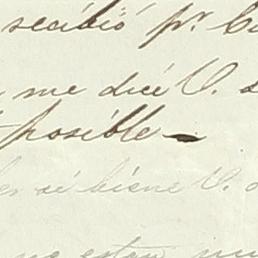 recibió pr.
me dice V.
posible
si bisne V.
no estan